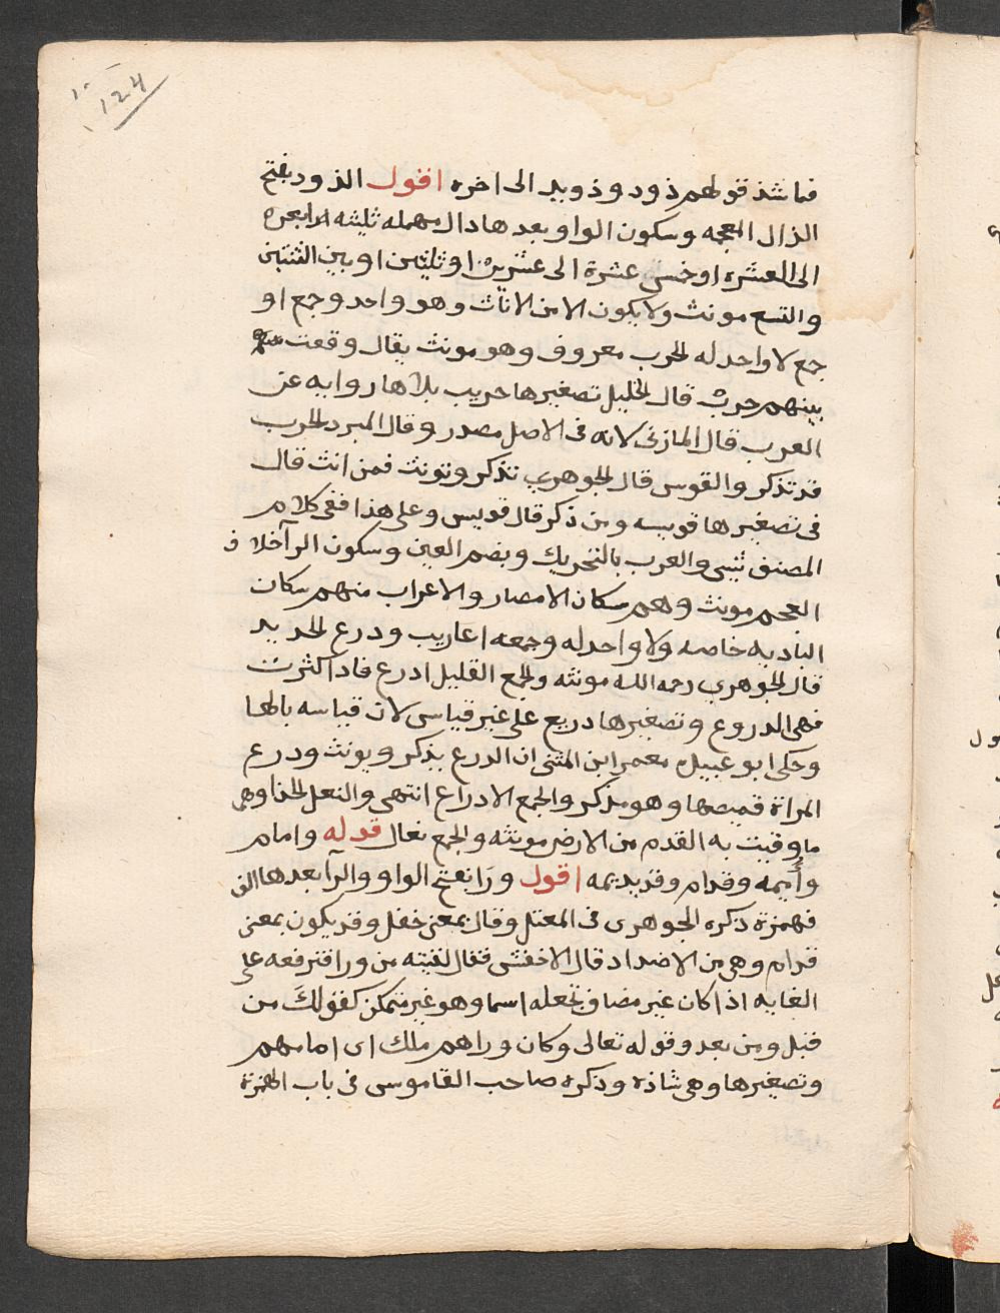 124
فما شذ قولهم ذود وذويد الى اخره اقول الذود بفتح
الذال المعجمه وسكون الواو بعدها دال مهمله ثلثه ابعره
الى العشره او خمس عشرة الى عشرين او ثلثين او بين الثنتين
والتسع مونث ولا يكون الا من الاناث وهو واحد وجمع او
جمع لا واحد له الحرب معروف وهو مونث يقال وقعت
بينهم حرب قال الخليل تصغيرها حريب بلاها روايه عن
العرب قال المازنى لانه فى الاصل مصدر وقال المبرد الحرب
قد تذكر والقوس قال الجوهري تذكر وتونث فمن انث قال
فى تصغيرها قويسه ومن ذكر قال قويس وعلى هذا ففى كلام
المصنف شى والعرب بالتحريك وبضم العين وسكون الرآ خلاف
العجم مونث وهم سكان الامصار والاعراب منهم سكان
الباديه خاصه ولا واحد له وجمعه اعاريب ودرع الحديد
قال الجوهري رحمه الله مونثه والجمع القليل ادرع فاذا كثرت
فهى الدروع وتصغيرها دريع على غير قياس لان قياسه بالها
وحكى ابو عبيده معمر ابن المثنى ان الدرع يذكر ويونث ودرع
المراة قميصها وهو مذكر والجمع الادراع انتهى والنعل الحذا وهى
ما وقيت به القدم من الارض مونثه والجمع نعال قوله وامام
وأُيمه وقدام وقديديمه اقول ورَا بفتح الواو والرآ بعدها الف
فهمزة ذكره الجوهرى فى المعتل وقال بمعنى خلف وقد يكون بمعنى
قدام وهى من الاضداد قال الاخفش فقال لقيته من ورا فترفعه على
الغايه اذا كان غير مضاف تجعله اسما وهو غير متمكن كقولكَ من
قبل ومن بعد وقوله تعالى وكان وراهم ملك اى امامهم
وتصغيرها وهى شاذه وذكره صاحب القاموس فى باب الهمزة